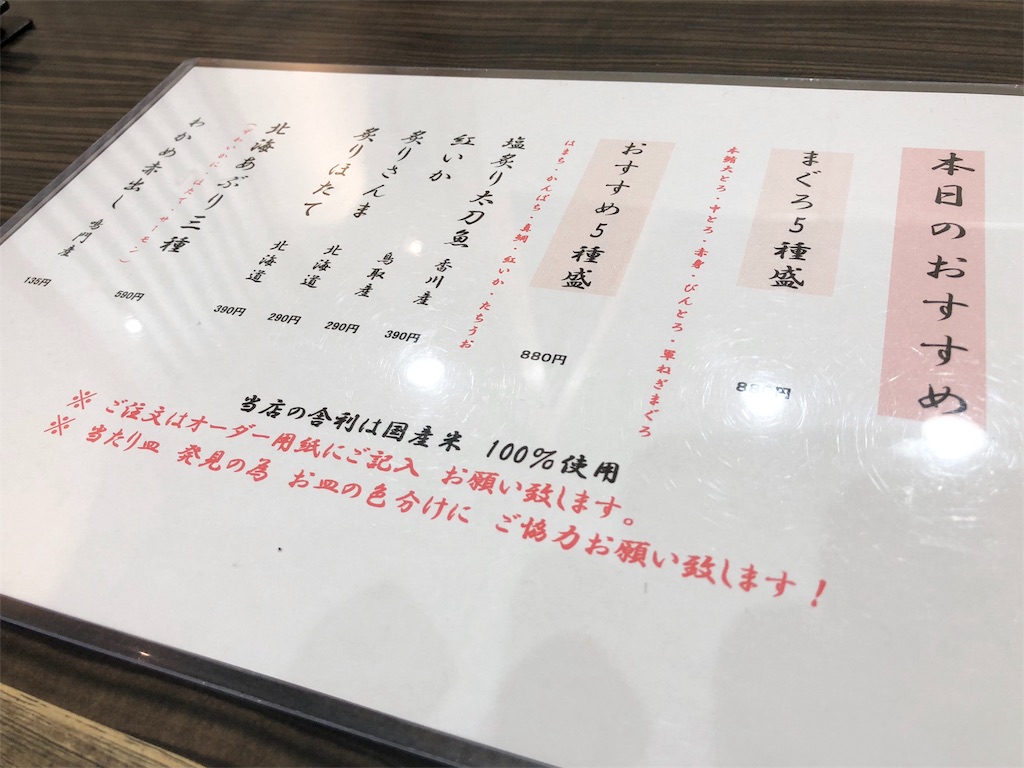 本日のおすすめ
まぐろ5種盛
本鮪大とろ・中とろ・赤身・びんとろ・軍ねぎまぐろ
おすすめ5種盛 880円
はまち・かんぱち・真鯛・紅いか・たちうお
塩炙り太刀魚 香川産 390円
紅いか 鳥取産 290円
炙りさんま 北海道 290円
炙りほたて 北海道 390円
北海あぶり三種 590円
(ずわいかに・ほたて・サーモン)
わかめ赤出し 鳴門産 135円
当店の舎利は国産米 100%使用
※ ご注文はオーダー用紙にご記入 お願い致します。
※ 当たり皿 発見の為 お皿の色分けに ご協力お願い致します!